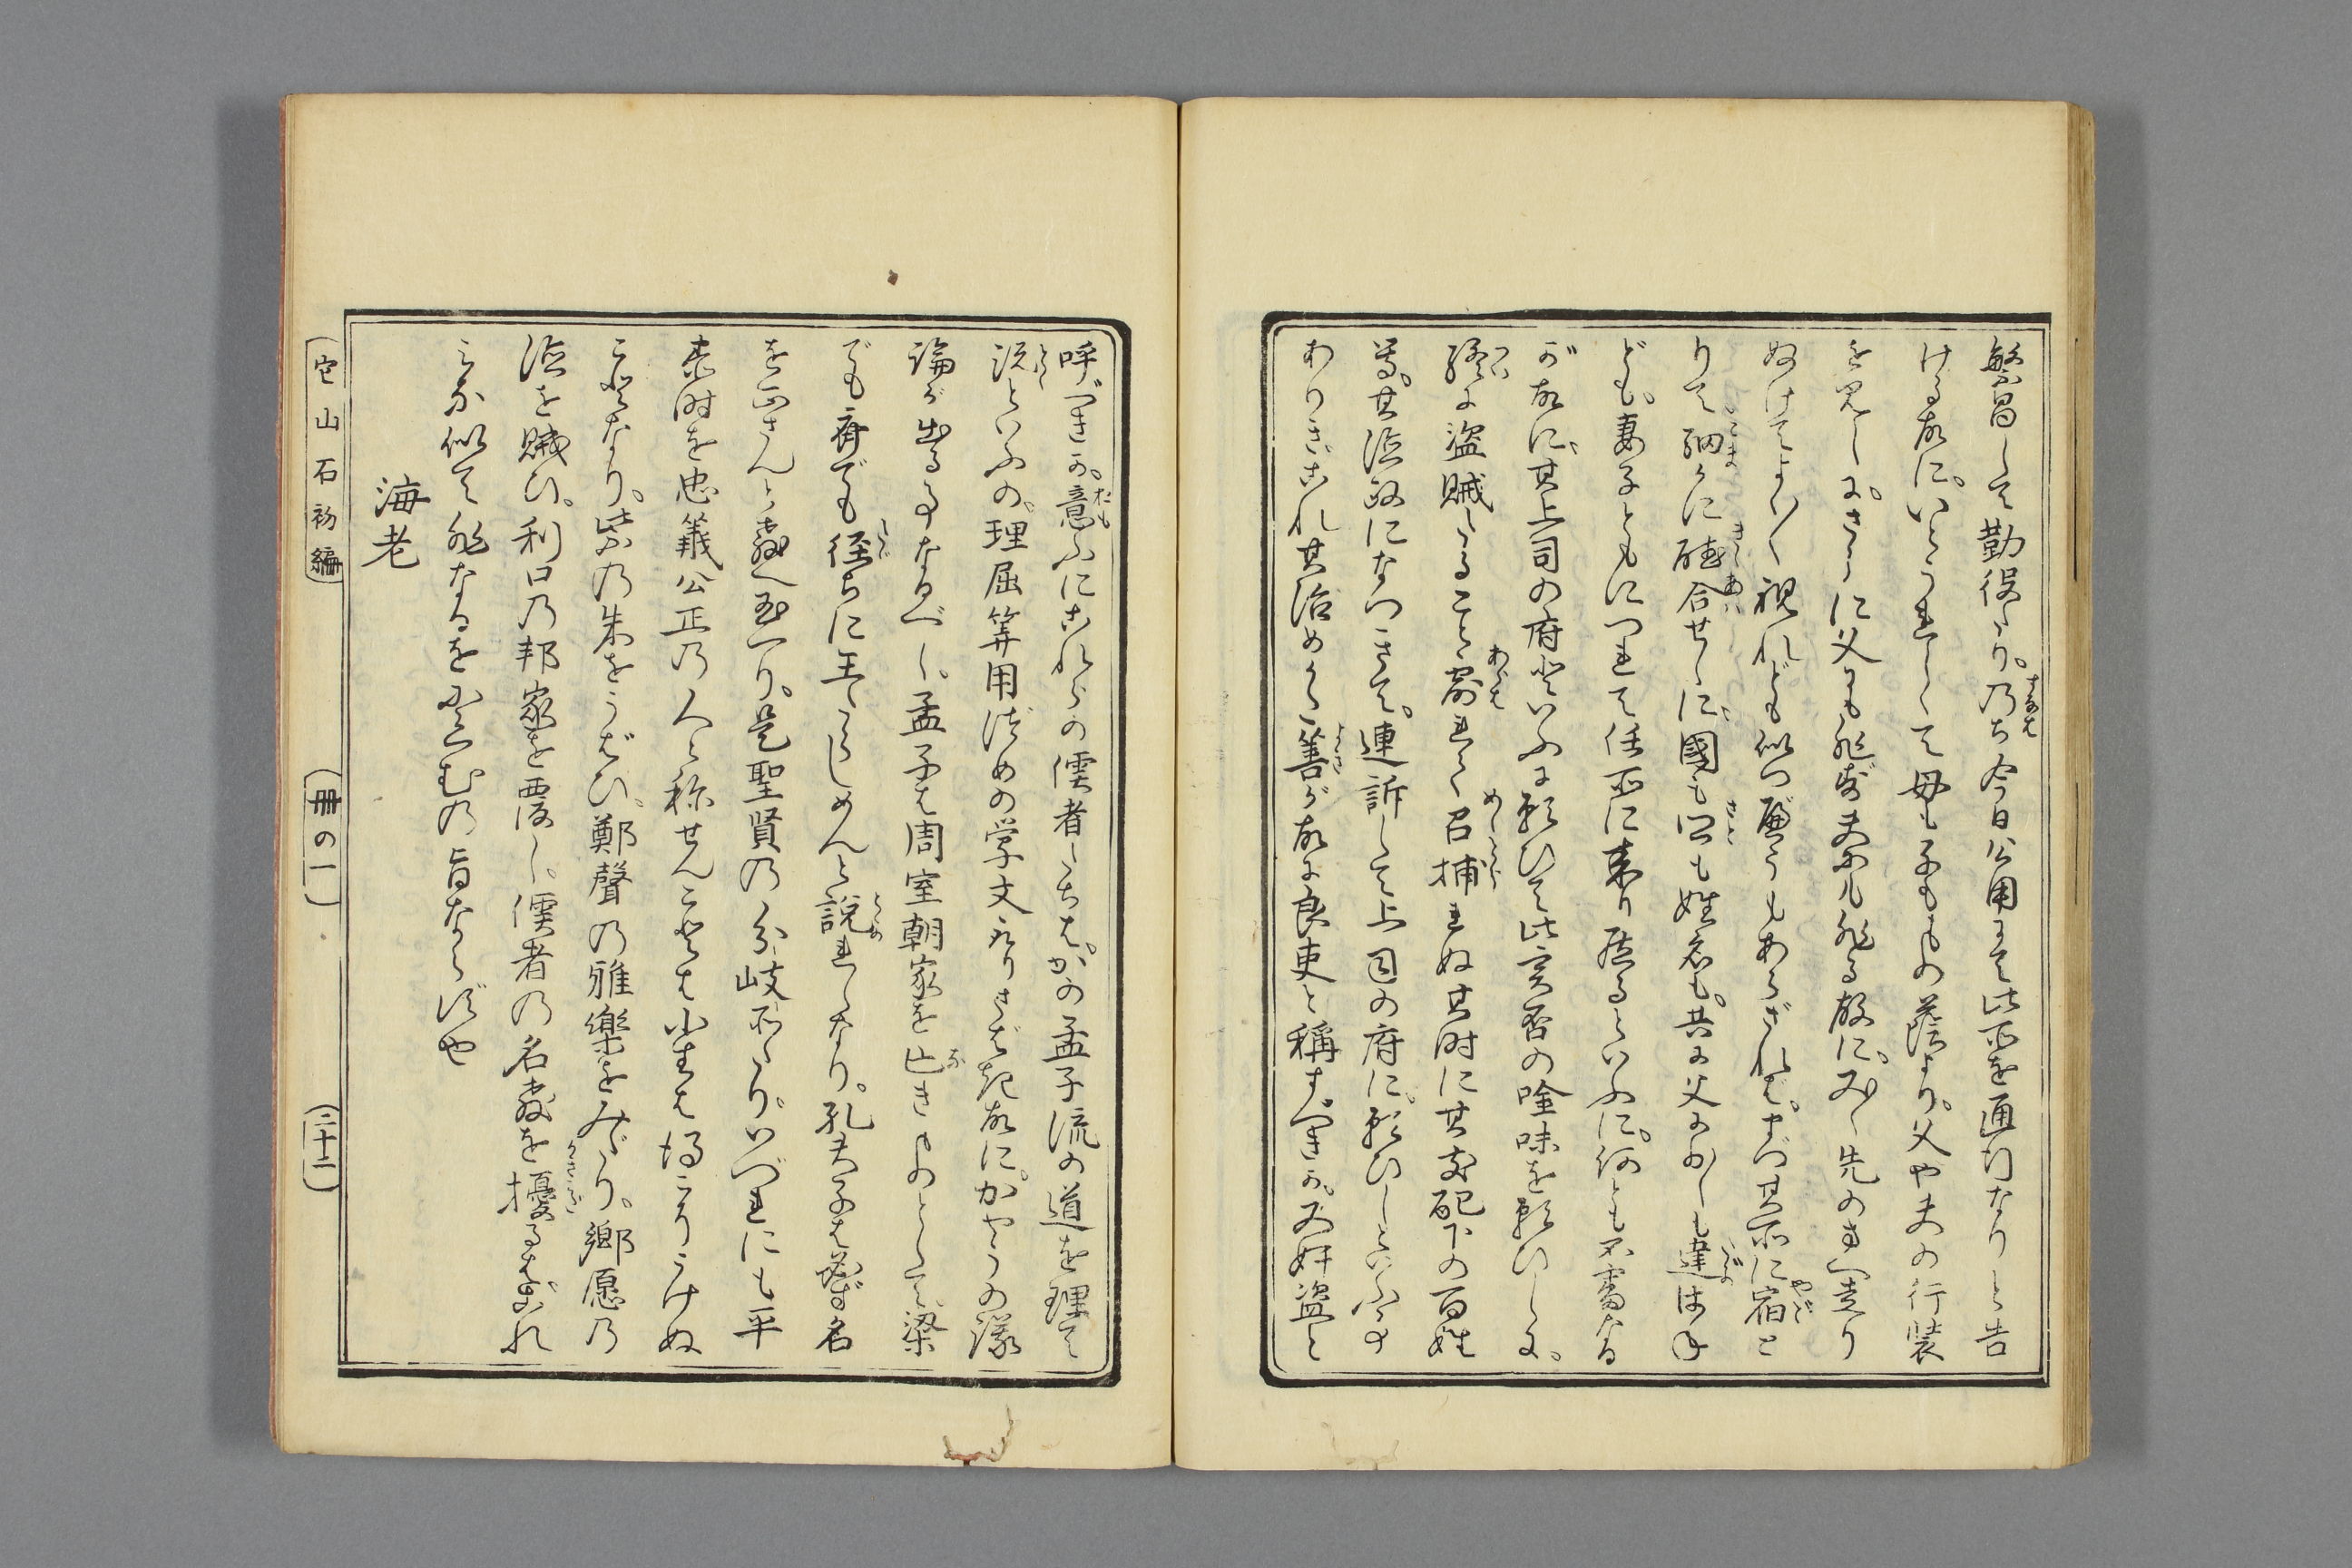 繁昌して勤役たり。乃ち今日公用にて此所を通行なりと告
ける故に。いとうれしくて母も子もものの蔭より。父や夫の行装
を見しに。さらに父にも非ず夫にも非る故に。又々先のまへ走り
ぬけてよく〳〵視れども似つ便りもあらざれば。まづ其所に宿と
りて細かに聴合せしに。國も里も姓名も。共に父に少しも違はね
ども。妻子ともにつれて任所に来り居るといふに。何とも不審なる
が故に。其上司の府といふに願ひて此実否の吟味を願ひしに。
終に盗賊しること露れて召捕れぬ其時に其支配下の百姓
等。其治政になつきて。連訴して上司の府に。願ひしといふ事の
ありきこれ其治めかた善が故に良吏と称すべきか。又奸盗と
呼べきか。意ふにこれらの儒者たちは。かの孟子流の道を理て
説といふの。理屈算用づめの学文ありさば起故に。かやうの議
論が出る事なるべし。孟子は周室朝家を亡きものとして。梁
でも齊でも径ちに王たらしめんと說れしなり。孔夫子は必ず名
を正さんと教へ玉へり。是聖賢の分岐所たり。いづれにも平
素時を忠義公正の人と称せんことは小生は得こりうけぬ
ことなり。紫の朱をうばひ。鄭聲の雅樂をみだり。鄉愿の
徳を賊ひ。利口の邦家を覆し。儒者の名教を擾るはこれ
みな似て非なるをにくむの旨ならずや
海老
空山石初編
冊の一
二十二